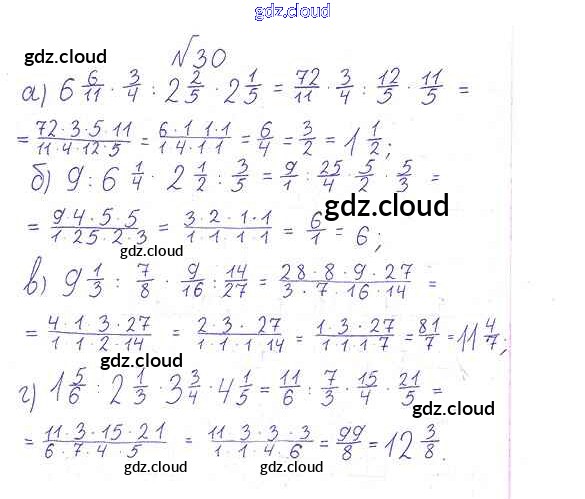 gdz.cloud
№30
gdz.cloud gdz.cloud
а) 6 6/11 · 3/4 : 2 2/5 · 2 1/5 = 72/11 · 3/4 : 12/5 · 11/5 =
= 72·3·5·11/11·4·12·5 = 6·1·1·1/1·4·1·1 = 6/4 = 3/2 = 1 1/2;
б) 9 : 6 1/4 · 2 1/2 : 3/5 = 9/1 : 25/4 · 5/2 · 5/3 =
gdz.cloud
= 9·4·5·5/1·25·2·3 = 3·2·1·1/1·1·1·1 = 6/1 = 6;
gdz.cloud
в) 9 1/3 : 7/8 · 9/16 : 14/27 = 28·8·9·27/3·7·16·14 =
= 4·1·3·27/1·1·2·14 = 2·3·27/1·1·1·14 = 1·3·27/1·1·1·7 = 81/7 = 11 4/7;
gdz.cloud gdz.cloud
г) 1 5/6 : 2 1/3 · 3 3/4 · 4 1/5 = 11/6 : 7/3 · 15/4 · 21/5 =
gdz.cloud
= 11·3·15·21/6·7·4·5 = 11·3·3·3/1·1·4·6 = 99/8 = 12 3/8.
gdz.cloud gdz.cloud